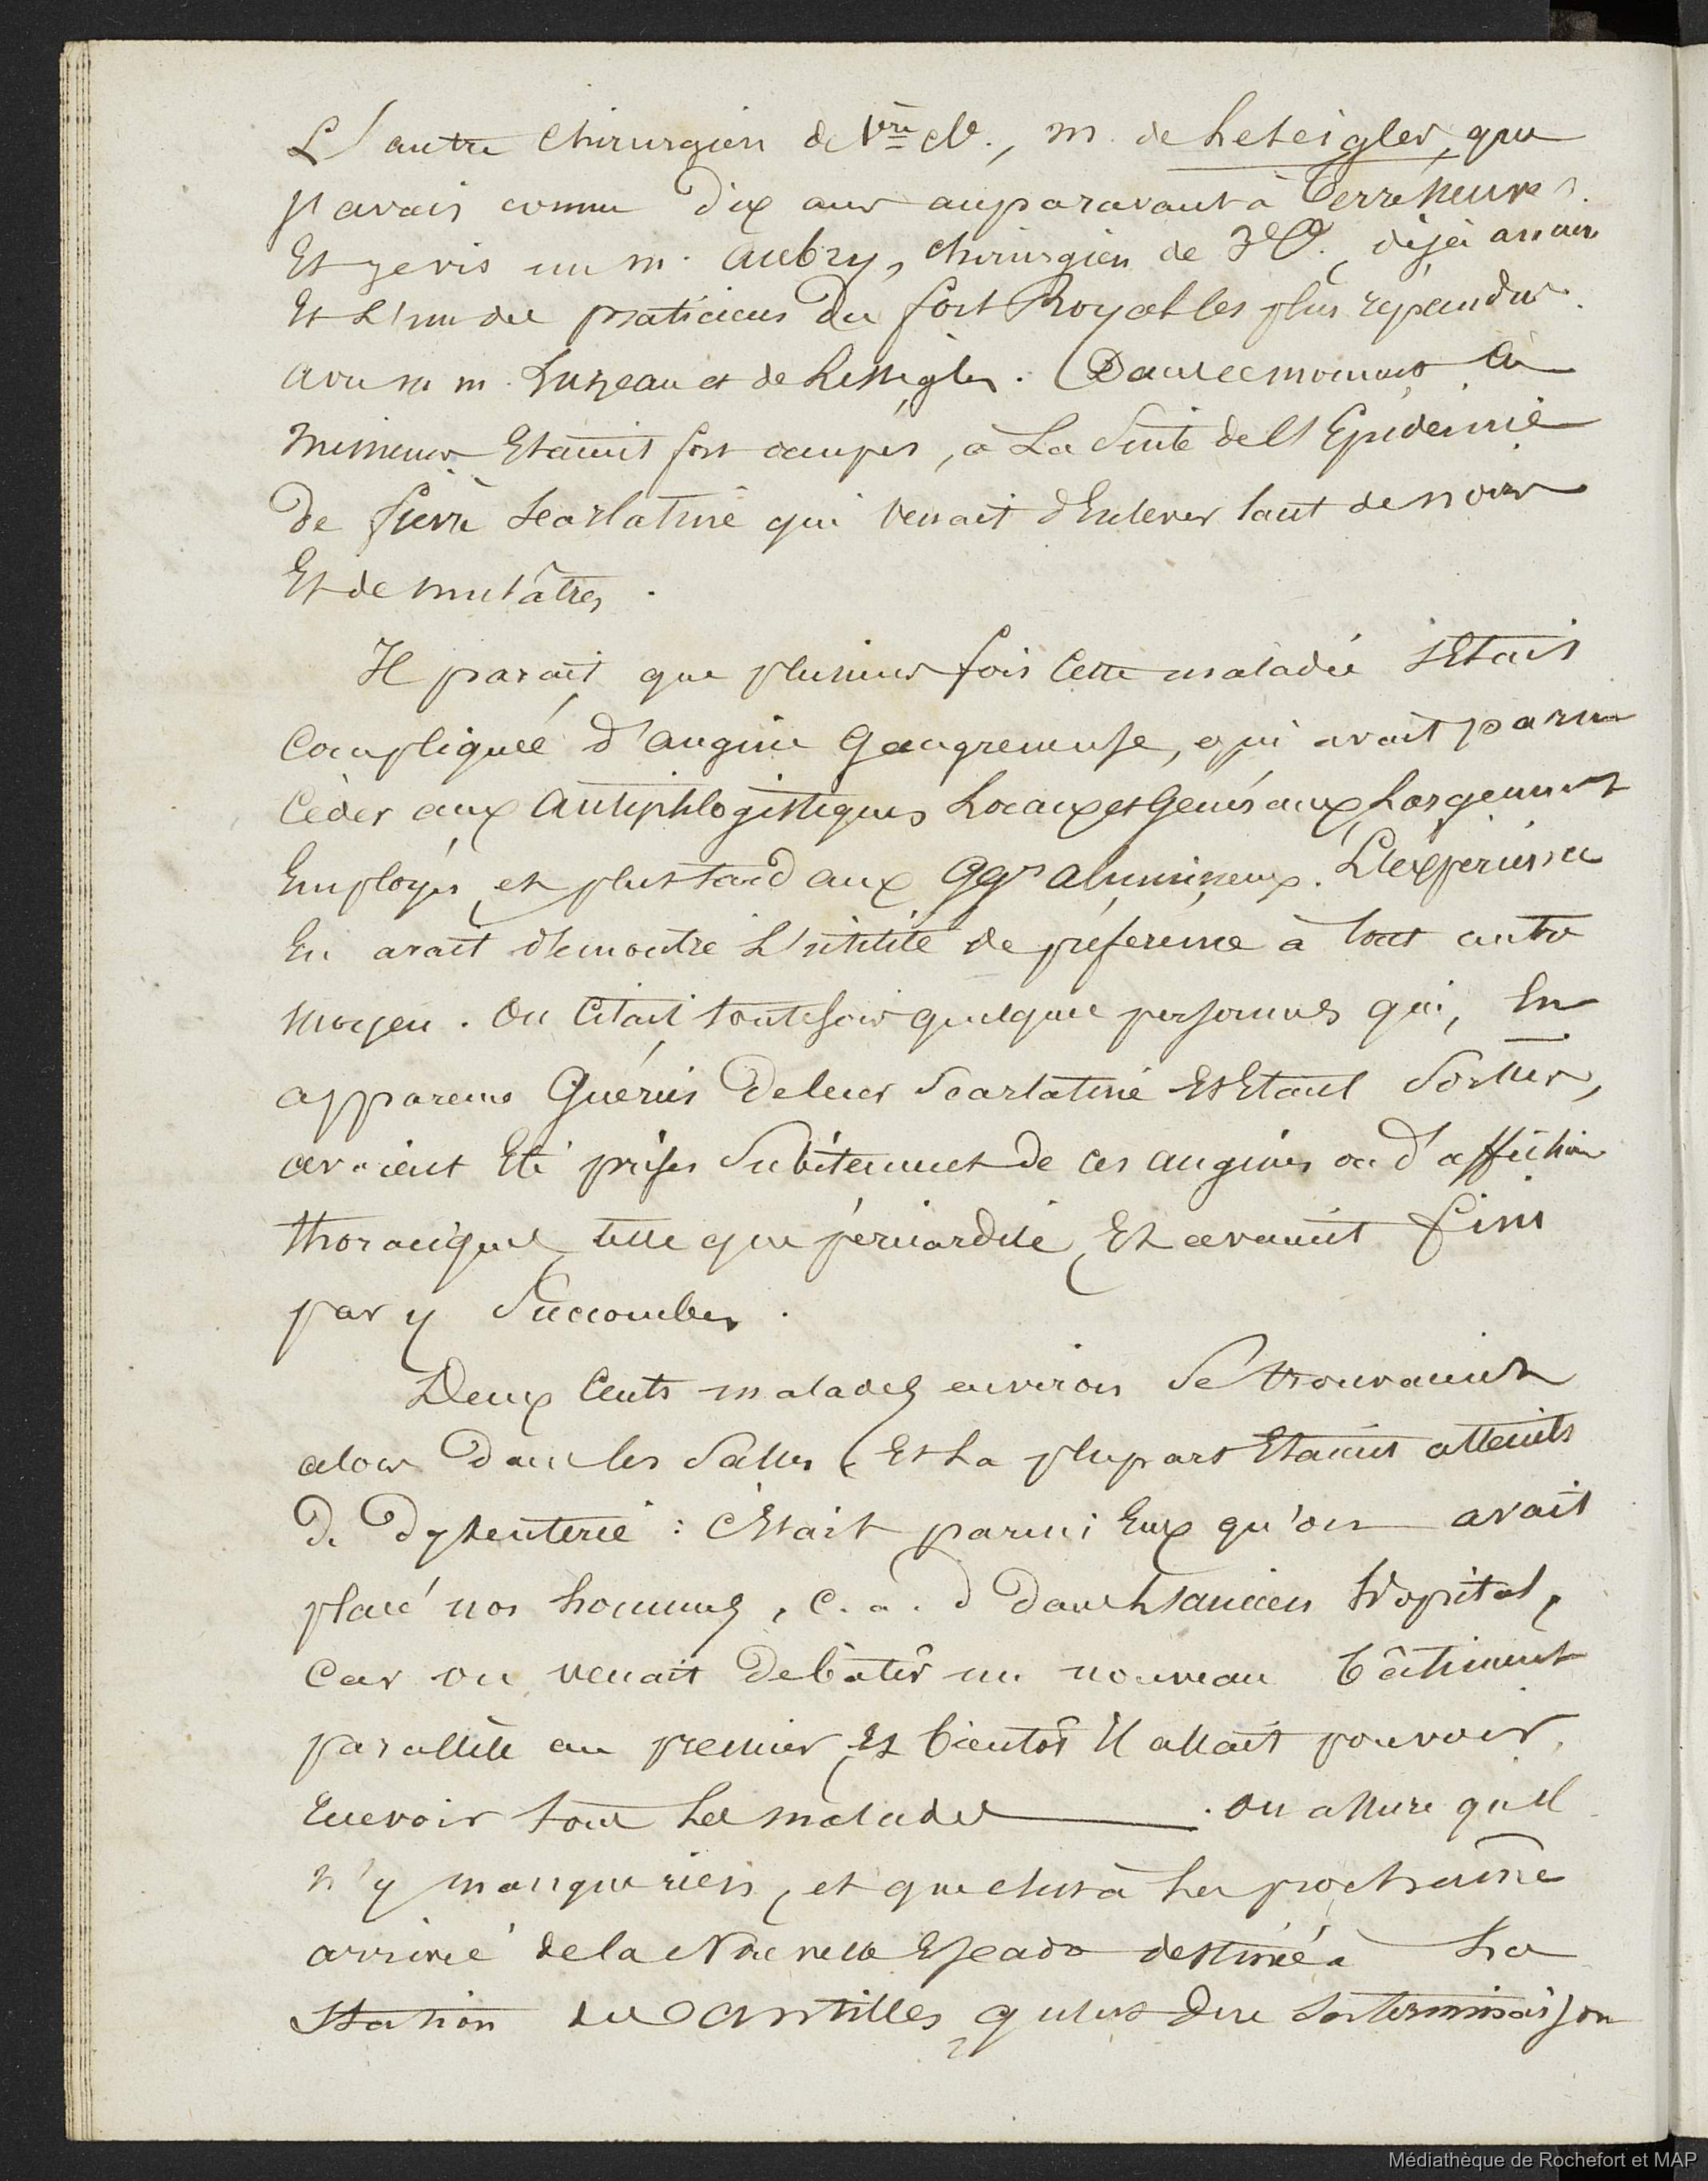 L'autre Chirurgien de 1ère cl., m. de Leseigler, que
j'avais connu dix ans auparavant à Terreneuve.
Et je vis un m. Aubry, Chirurgien de 3e Cl. déjà ancien
Et L'un des praticiens du fort Royal les plus répandus.
avec m. Luzeau et de Lesseigler. Dans ce moment ces
Messieurs Etaient fort occupés, à La Suite de l'Epidémie
de fièvre Scarlatine qui venait d'Enlever tant de noirs
Et de mulâtres.
Il parait que plusieurs fois Cette maladie s'Etait
Compliquée d'angine Gangreneuse, qui avait paru
Céder aux Antiphlogistiques Locaux et Généraux Largement
Employés, et plus tard aux Ggs alumineux. L'expérience
En avait démontré L'utilité de préférence à tout autre
moyen. On Citait toutefois quelques personnes qui, En
apparence Guéries de leur Scarlatine Et Etant Sorties,
avaient Eté prises Subitement de ces angines ou d'affections
thoraciques, telle que péricardite, Et avaient fini
par y Succomber.
Deux Cents malades environ Se trouvaient
alors dans les Salles, Et La plupart Etaient atteints
de dysenterie : C'Etait parmi Eux qu'on avait
placé nos hommes, c. a. d dans L'ancien hôpital,
Car on venait de bâtir un nouveau bâtiment
parallèle au premier, Et bientôt Il allait pouvoir
recevoir tous Les malades. On assure qu'il
n'y manque rien, et que c'est à La prochaine
arrivée de la Nouvelle Escadre destinée à La
Station des Antilles qu'est due La terminaison